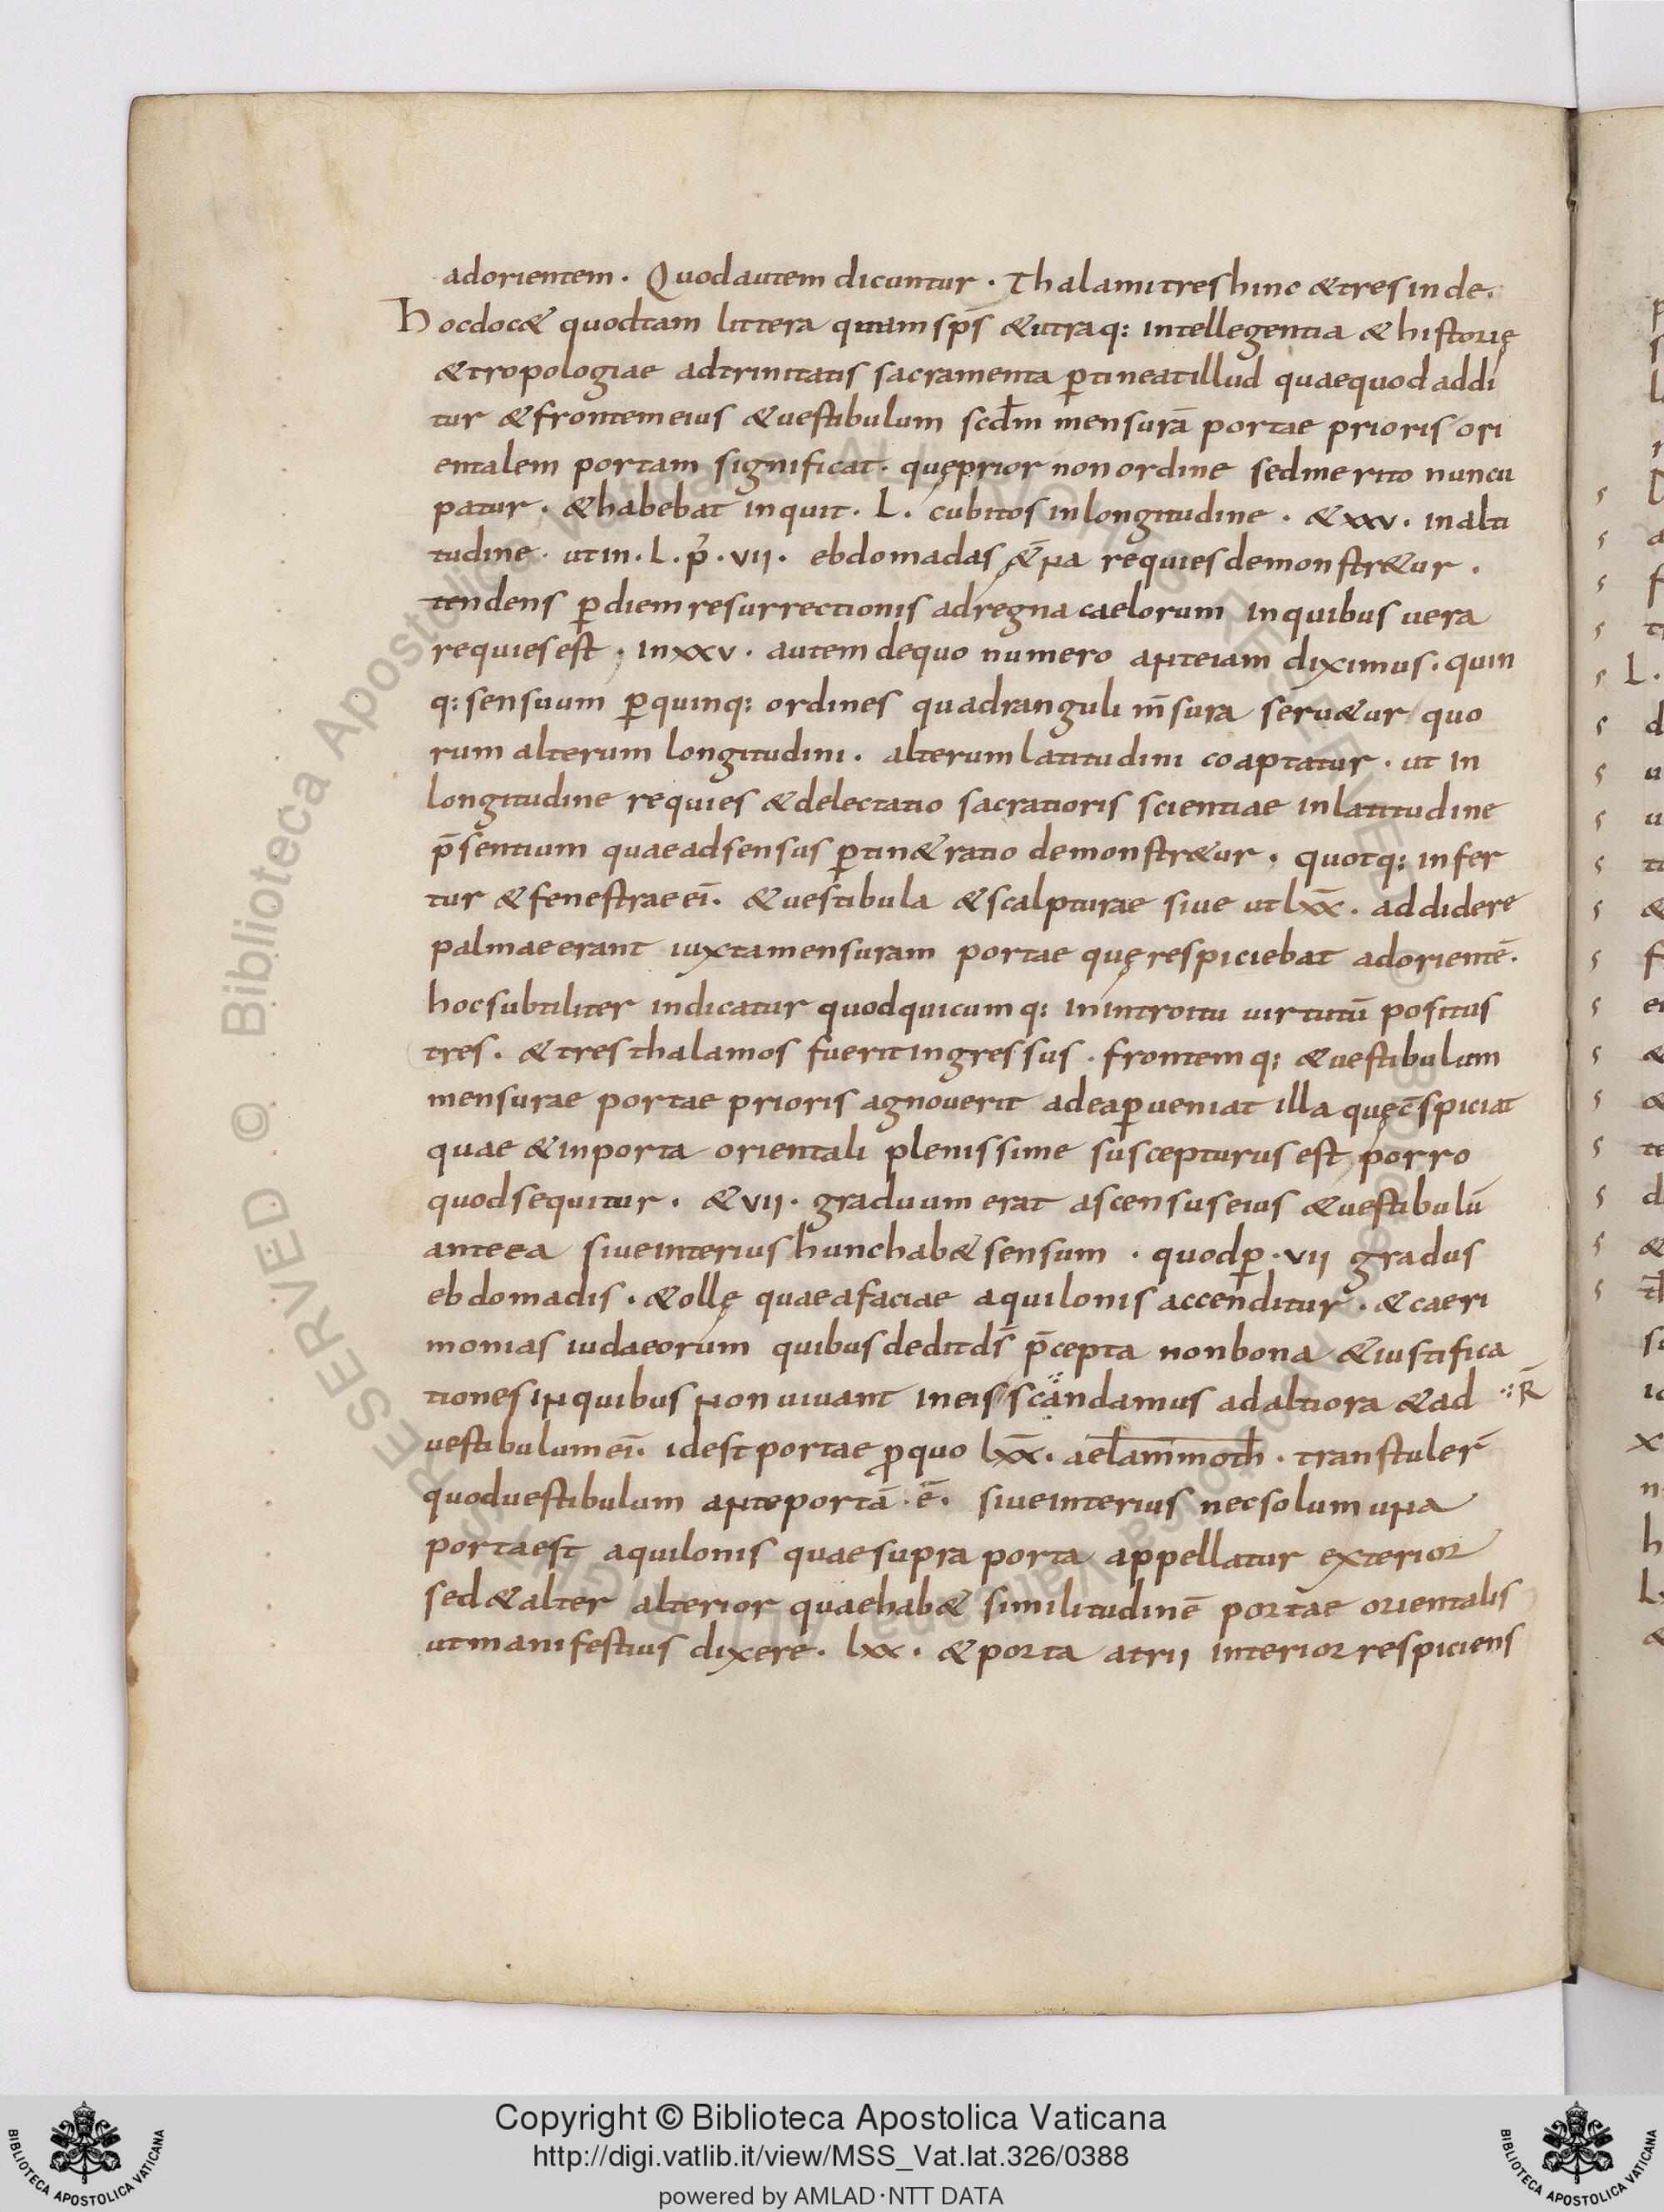 adorientem. Quodautem dicuntur. Thalamitreshinc &tresinde.
hocdoc& quodtam littera quam sp̄s &utraq: intellegentia & historię
&tropologiae adtrinitatis sacramenta ꝑtineatillud quaequod addi
tur &frontemeius &uestibulum scdm̄ mensurā portae prioris ori
entalem portam significat. quęprior nonordine sedmerito nuncu
patur. &habebat inquit. L. cubitos inlongitudine. &xxv. inalti
tudine. utin. L. p̄. vii. ebdomadas requiesdemonstr&ur.
tendens ꝑdiemresurrectionis adregna caelorum inquibus uera
requiesest. inxxv. autem dequo numero anteiam diximus. quin
q: sensuum ꝑquinq: ordines quadranguli m̄sura seru&ur quo
rum alterum longitudini. alterum latitudini coaptatur. ut in
longitudine requies &delectatio sacratioris scientiae inlatitudine
p̄sentium quaeadsensus ꝑtin&ratio demonstr&ur. quotq: infer
tur &fenestrae eī. &uestibula &scalpturae siue utlx̄x̄. addidere
palmaeerant iuxtamensuram portae quęrespiciebat adorientē.
hocsubtiliter indicatur quodquicumq: inintroitu uirtutū positus
tres. &tres thalamos fueritingressus. frontemq: &uestibulum
mensurae portae prioris agnouerit adeaꝑueniat illa quęc̄spiciat
quae &inporta orientali plenissime suscepturus est porro
quodsequitur. &vii. graduum erat ascensuseius &uestibulū
anteea siueinterius hunchab& sensum. quodꝑ. vii gradus
ebdomadis. &ollę quaeafaciae aquilonis accenditur. &caeri
monias iudaeorum quibusdeditds̄ p̄cepta nonbona &iustifica
tiones inquibus nonuiuant ineis scandamus adaltiora &ad ∴ R̄
uestibulumeī. idest portae ꝓquo lx̄x̄. aelammoth. transtuler̄
quoduestibulum anteportā. ē. siueinterius necsolumuna
portaest aquilonis quaesupra porta appellatur exterior
sed&alter alterior quaehab& similitudinē portae orientalis
utmanifestius dixere. lxx. &porta atrii interior respiciens
Copyright © Biblioteca Apostolica Vaticana
http://digi.vatlib.it/view/MSS_Vat.lat.326/0388
powered by AMLAD·NTT DATA
BIBLIOTECA APOSTOLICA VATICANA
BIBLIOTECA APOSTOLICA VATICANA